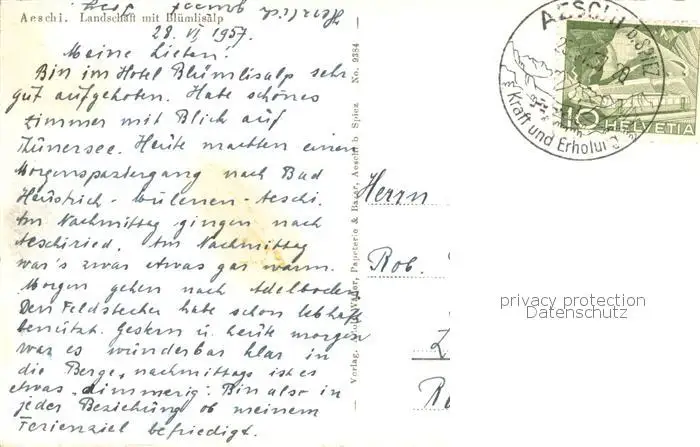 Aeschi. Landschaft mit Blümlisalp
28. VI 1957.
Meine Lieben!
Bin im Hotel Blümlisalp sehr
gut aufgehoben. Habe schönes
Zimmer mit Blick auf
Thunersee. Heute machten einen
Morgenspaziergang nach Bad
Heustrich - Mülenen - Aeschi.
Am Nachmittag gingen nach
Aeschiried. Am Nachmittag
war's zwar etwas gar warm.
Morgen gehen nach Adelboden
Den Feldstecher habe schon lebhaft
benützt. Gestern u. heute morgen
war es wunderbar klar in
die Berge, nachmittags ist es
etwas "dimmerig". Bin also in
jeder Beziehung ob meinem
Ferienziel befriedigt.
Herzlich
Verlag, Papeterie & Bazar, Aeschi b. Spiez No. 9384
AESCHI b. SPIEZ
Kraft und Erholun
10 HELVETIA
Herrn
Rob.
Z
privacy protection
Datenschutz